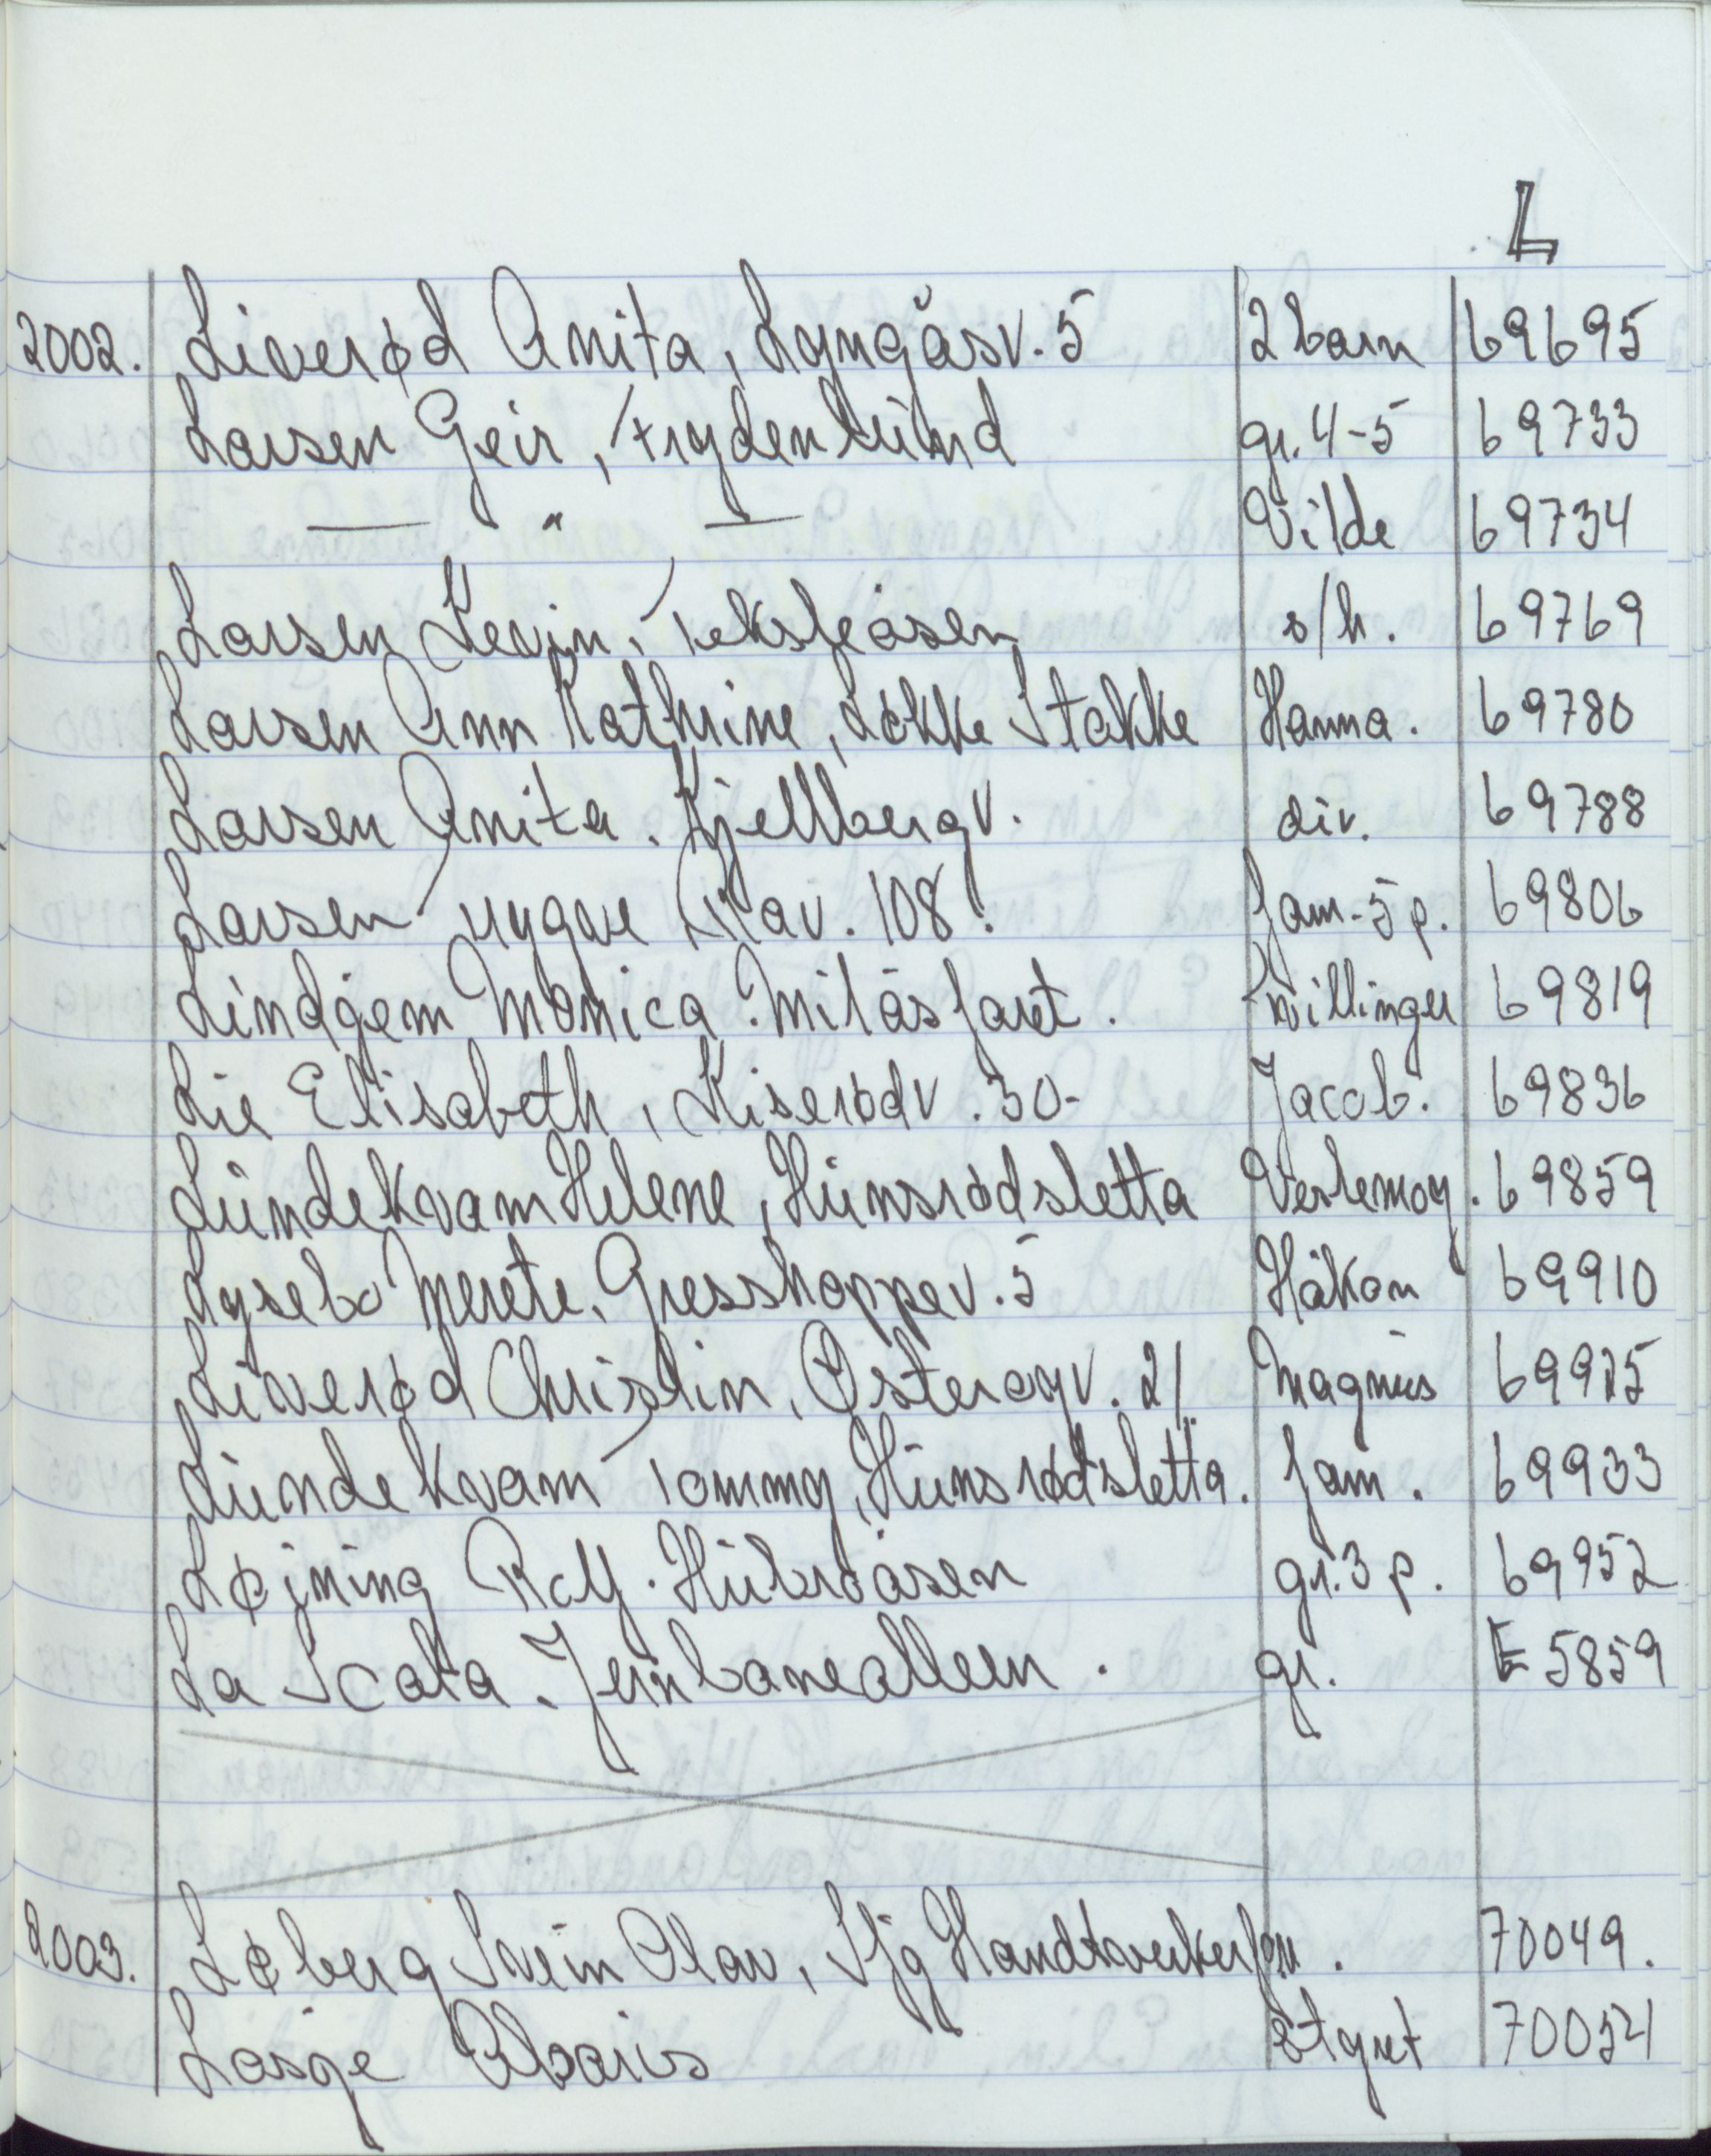 L
2002. Liverød Anita, Lyngåsv. 5 2 barn 69695
Larsen Geir, Frydenlund gr. 4-5 69733
— " — Vilde 69734
Larsen Kevin, s/h. 69769
Larsen Ann Kathrine, Løkke Stakke Hanna. 69780
Larsen Anita. Kjellbergv. div. 69788
Larsen Trygve, Ulav. 108. fam-5 p. 69806
Lindgem Monica. Milåsfaret. tvillinger 69819
Lie Elisabeth, Kiserødv. 30- Jacob. 69836
Lundekvam Helene, Hunsrødsletta Veslemøy. 69859
Lysebo Merete. Gresshoppev. 5 Håkon 69910
Liverød Christin, Østerøyv. 21 Magnus 69925
Lundekvam Tommy, Hunsrødsletta. fam. 69933
Løjning Rolf. Hubroåsen gr. 3 p. 69952
La Scala. Jernbanealleen. gr. E 5859
2003. Løberg Svein Olav, Sfj Håndtverkerfor. 70049.
Losge Polaris st. gret 70054